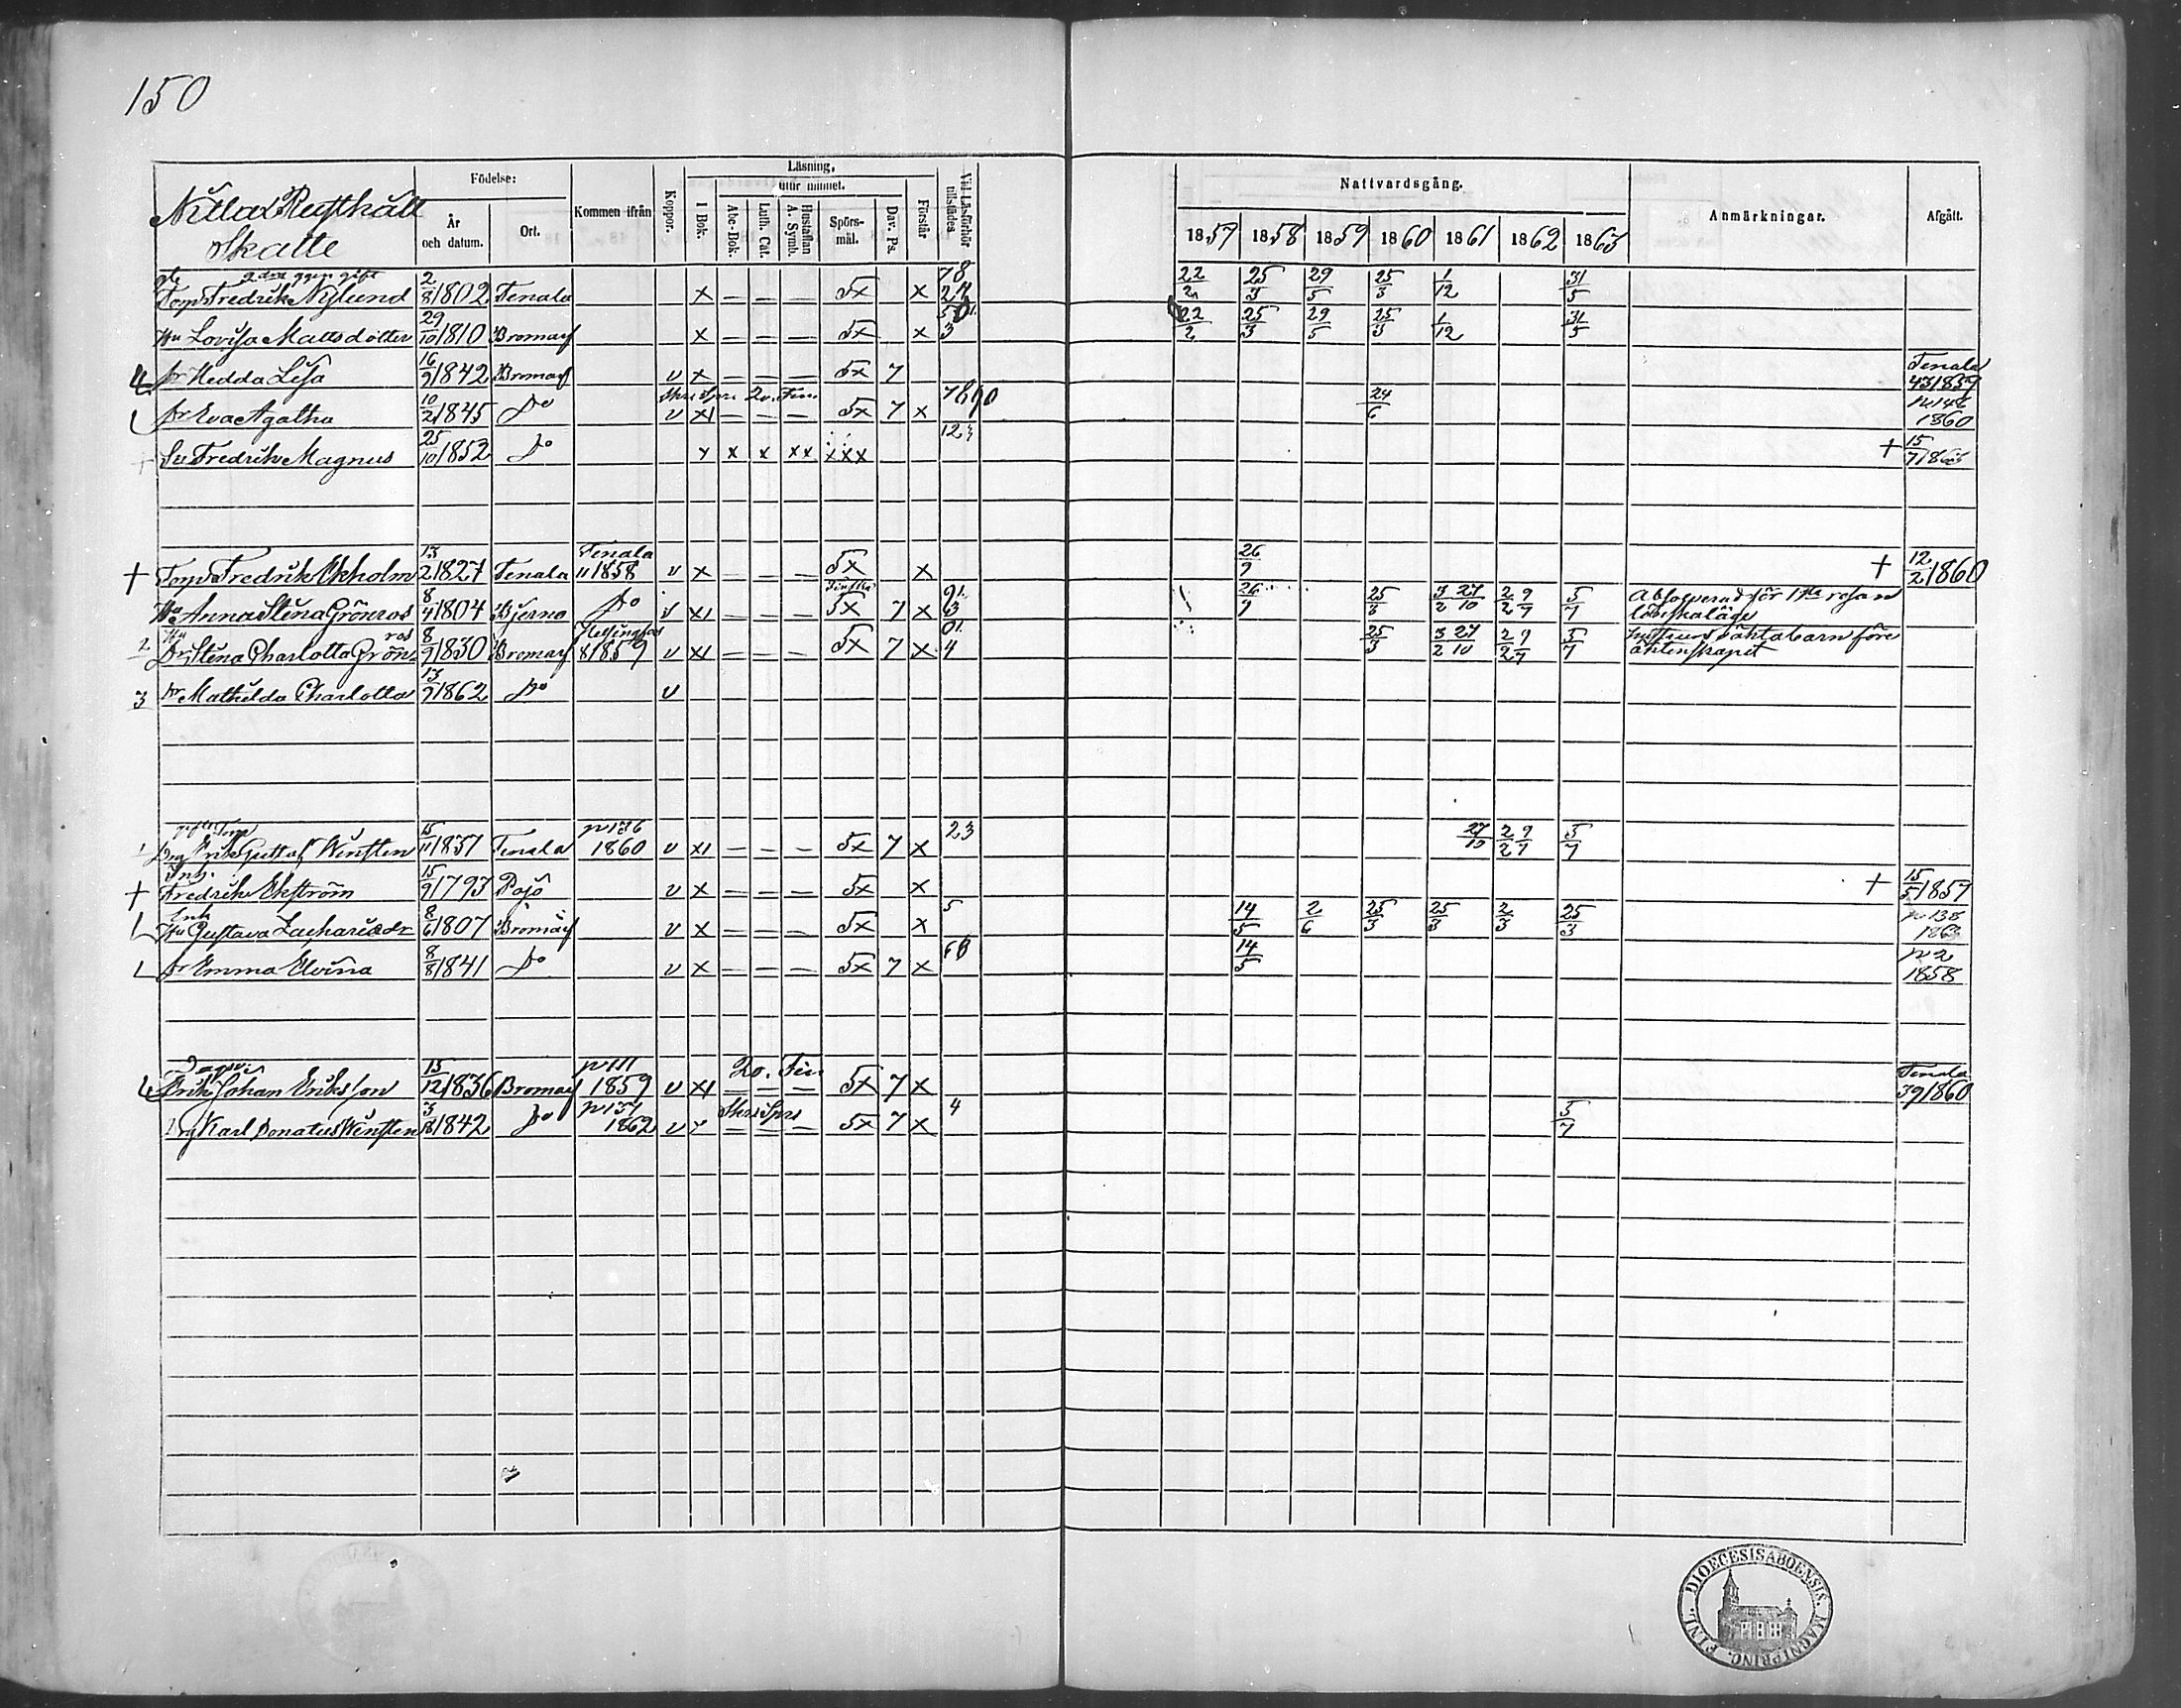 150
Läsning,
Födelse: utur minnet. Nattvardsgång.
År och datum. Ort. Kommen ifrån Koppor. I Bok. Abc-Bok. Luth. Cat. Hustaflan A. Symb. Spörsmål. Dav. Ps. Förstår Vid Läsförhör tillstädes 1857 1858 1859 1860 1861 1862 1863 Anmärkningar. Afgått.
Skatte
2dra ggen gift
Torp Fredrik Nylund 2/8 1802 Tenala x — — — 5x x 22/2 25/3 29/5 25/3 1/12 31/5
Hu Lovisa Mattsdotter 29/10 1810 Bromarf x — — — 5x x 3 22/2 25/3 29/5 25/3 1/12 31/5
dr Hedda Lisa 16/9 1842 Bromarf v x — — — 5x 7 Tenala 43 1859
dr Eva Agatha 10/2 1845 Do v x1 — — — 5x 7 x 24/6 1860
+ Su Fredrik Magnus 25/10 1852 Do x x x xx xxx 12 + 15/7 1863
+ Torp Fredrik Ekholm 13/2 1827 Tenala Tenala 11 1858 v x — — — 5x x 26/9 + 12/2 1860
Hu Anna Stina Grönros 8/4 1804 Bjerno Do v x1 — — — 5x 7 x 26/9 25/3 3/2 27/10 2/2 9/7 5/7 Absolverad för 1sta resan lönskaläge
2 Dr Stina Charlotta Grönros 8/9 1830 Bromarf Helsingfors 8 1859 v x1 — — — 5x 7 x 4 25/3 3/2 27/10 2/2 9/7 5/7 oäkta barn före äktenskapet
3 dr Mathilda Charlotta 13/9 1862 Do v
Drg Erik Gustaf Winsten 15/11 1837 Tenala p 136 1860 v x1 — — — 5x 7 x 23 27/10 2/2 9/7 5/7
Inh.
+ Fredrik Ekström 15/9 1793 Pojo v x — — — 5x x + 15/5 1857
Enk
Hu Gustava Zachariædr 8/6 1807 Bromarf v x — — — 5x x 5 14/5 2/6 25/3 25/3 2/3 25/3 p 138 1863
dr Emma Elvina 8/8 1841 Do v x — — — 5x 7 x 14/5 p 2 1858
Erik Johan Eriksson 15/12 1836 Bromarf p 111 1859 v x1 — — — 5x 7 x Tenala 39 1860
Drg Karl Donatus Winsten 1842 Do 1862 v — — — 5x 7 x 4 5/7
DIOECESIS ABOENSIS. MAGNI PRINC. FINL.